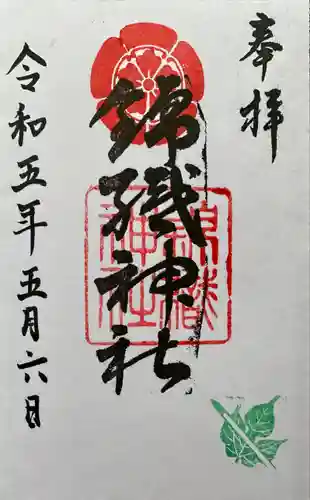 奉拝
錦織神社
錦織神社
令和五年五月六日